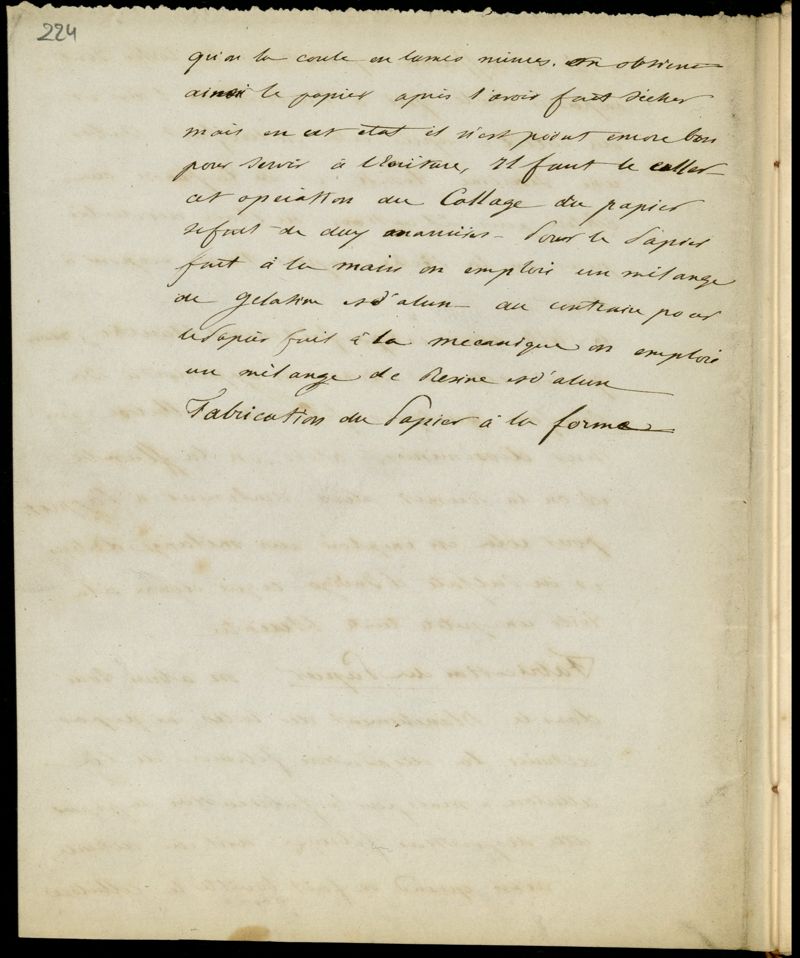 224
qu'on la coule en lames minces. on obtient
ainsi le papier après l'avoir fait sècher
mais en cet etat il n'est point encore bon
pour servir à l'Ecriture, Il faut le coller
cet operation du Collage du papier
se fait de deux manières – Pour le Papier
fait à la main on emploie un mélange
de gelatine et d'alun au contraire pour
le Papier fait à la mecanique on emploie
un mélange de Resine et d'alun
Fabrication du Papier à la forme